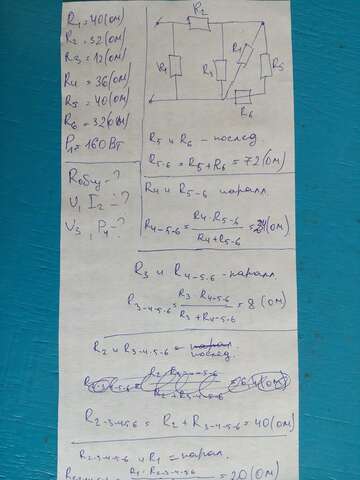 R₁=40(ом)
R₂=32(ом)
R₃=12(ом)
R₄=36(ом)
R₅=40(ом)
R₆=32(ом)
P₁=160Вт
Rобщ-?
U₁ I₂-?
U₃, P₄-?
R₂
R₁
R₃
R₄
R₅
R₆
R₅ и R₆ - послед
R₅₋₆=R₅+R₆=72(ом)
R₄ и R₅₋₆ паралл
R₄₋₅₋₆=R₄·R₅₋₆/R₄+R₅₋₆=24(ом)
R₃ и R₄₋₅₋₆-паралл.
R₃₋₄₋₅₋₆=R₃·R₄₋₅₋₆/R₃+R₄₋₅₋₆=8(ом)
R₂ и R₃₋₄₋₅₋₆= послед.
R₂₋₃₋₄₋₅₋₆=R₂+R₃₋₄₋₅₋₆=40(ом)
R₂₋₃₋₄₋₅₋₆ и R₁=парал.
R₁·R₂₋₃₋₄₋₅₋₆
=20(ом)